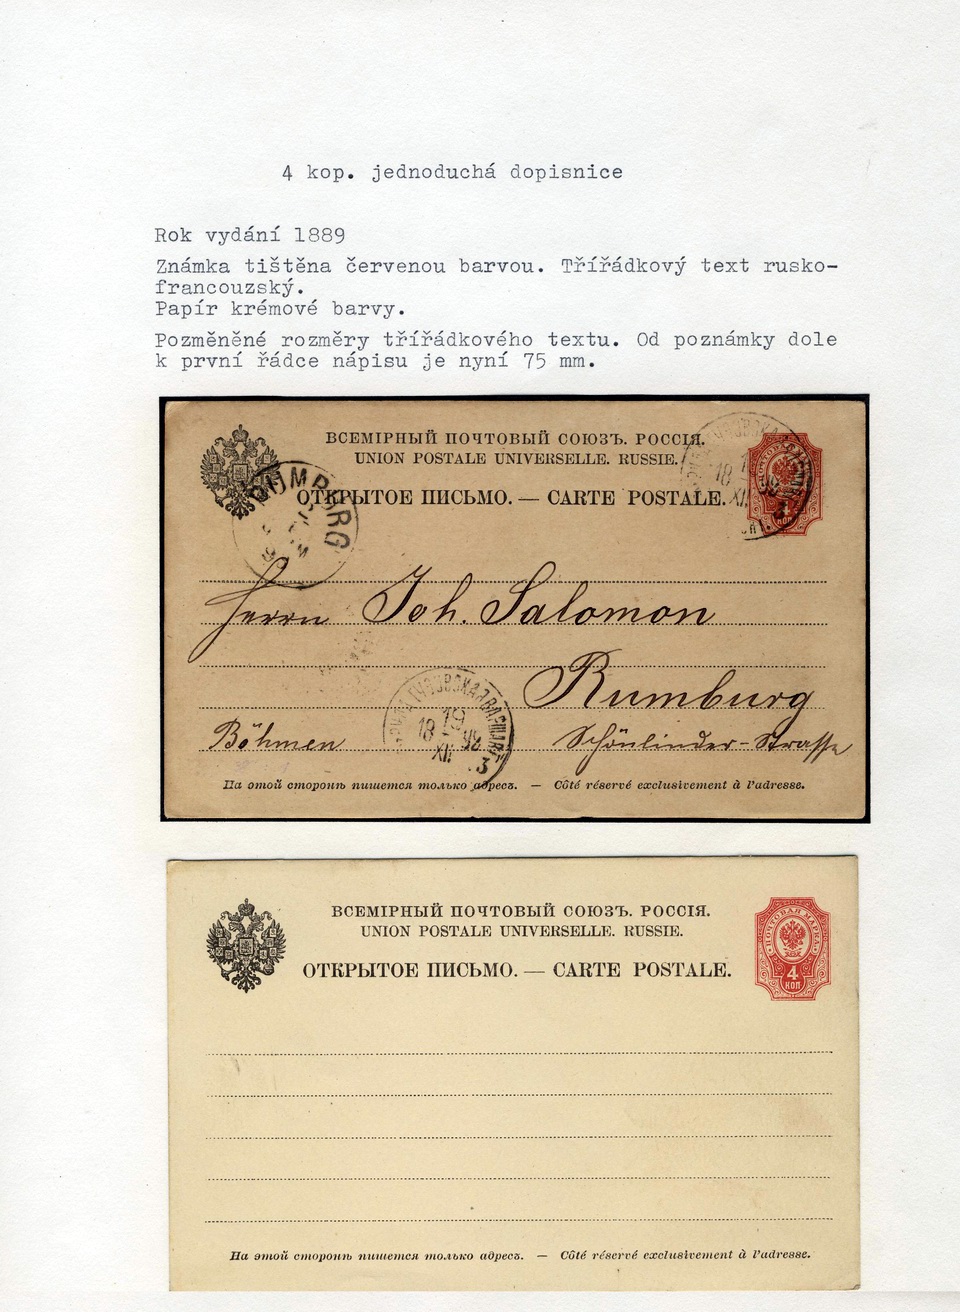 4 kop. jednoduchá dopisnice
Rok vydání 1889
Známka tištěna červenou barvou. Třířádkový text rusko-
francouzský.
Papír krémové barvy.
Pozměněné rozměry třířádkového textu. Od poznámky dole
k první řádce nápisu je nyní 75 mm.
ВСЕМІРНЫЙ ПОЧТОВЫЙ СОЮЗЪ. РОССІЯ.
UNION POSTALE UNIVERSELLE. RUSSIE.
ОТКРЫТОЕ ПИСЬМО. — CARTE POSTALE.
4
КОП
RUMBURG
18
XII
Herrn Joh. Salomon
Rumburg
Böhmen Schönlinder-Strasse
19
18 98
XII
3
На этой сторонѣ пишется только адресъ. — Côté réservé exclusivement à l'adresse.
ВСЕМІРНЫЙ ПОЧТОВЫЙ СОЮЗЪ. РОССІЯ.
UNION POSTALE UNIVERSELLE. RUSSIE.
ОТКРЫТОЕ ПИСЬМО. — CARTE POSTALE.
ПОЧТОВАЯ МАРКА
4
КОП
На этой сторонѣ пишется только адресъ. — Côté réservé exclusivement à l'adresse.